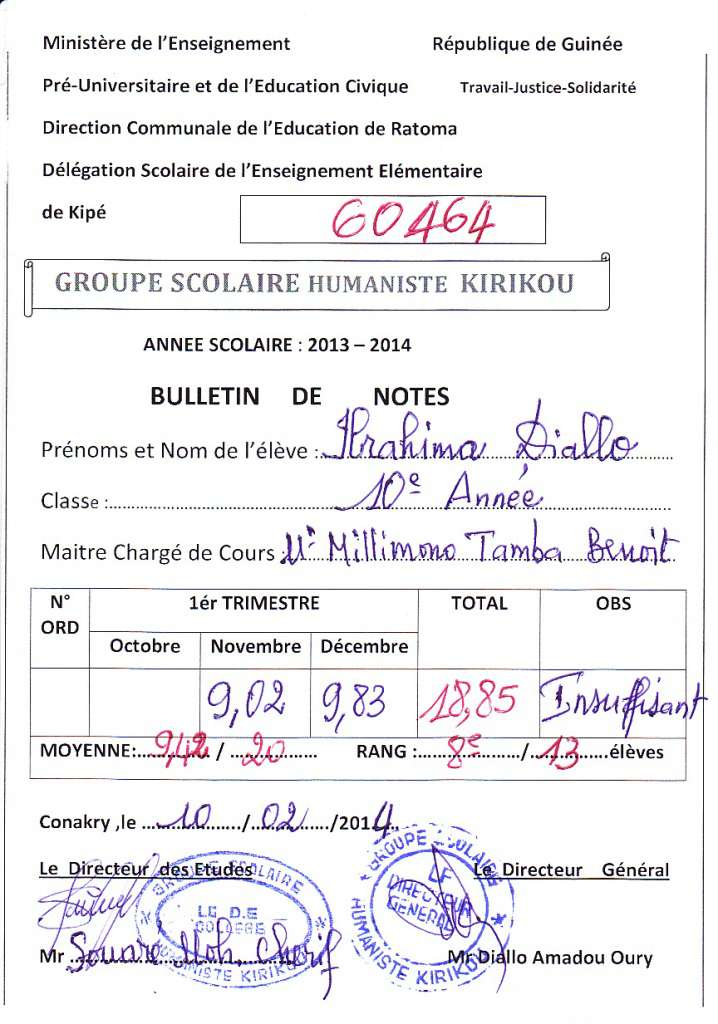 Ministère de l'Enseignement République de Guinée
Pré-Universitaire et de l'Education Civique Travail-Justice-Solidarité
Direction Communale de l'Education de Ratoma
Délégation Scolaire de l'Enseignement Elémentaire
de Kipé 60464
GROUPE SCOLAIRE HUMANISTE KIRIKOU
ANNEE SCOLAIRE : 2013 – 2014
BULLETIN DE NOTES
Prénoms et Nom de l'élève : Ibrahima Diallo
Classe : 10e Année
Maitre Chargé de Cours Mr Millimono Tamba Benoît
N° ORD 1ér TRIMESTRE TOTAL OBS
Octobre Novembre Décembre
9,02 9,83 18,85 Insuffisant
MOYENNE: 9,42 / 20 RANG : 8e / 13 élèves
Conakry ,le 10 / 02 /2014
Le Directeur des Etudes Le Directeur Général
GROUPE SCOLAIRE
LE D.E
COLLEGE
HUMANISTE KIRIKOU
GROUPE SCOLAIRE
LE
DIRECTEUR
GENERAL
HUMANISTE KIRIKOU
Mr Souaré Moh. Cherif Mr Diallo Amadou Oury